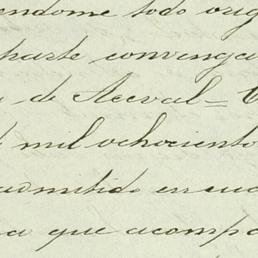 endome todo orig
parte convenga
de Aceval = C
mil ochociento
admitido en cua
a que acompa